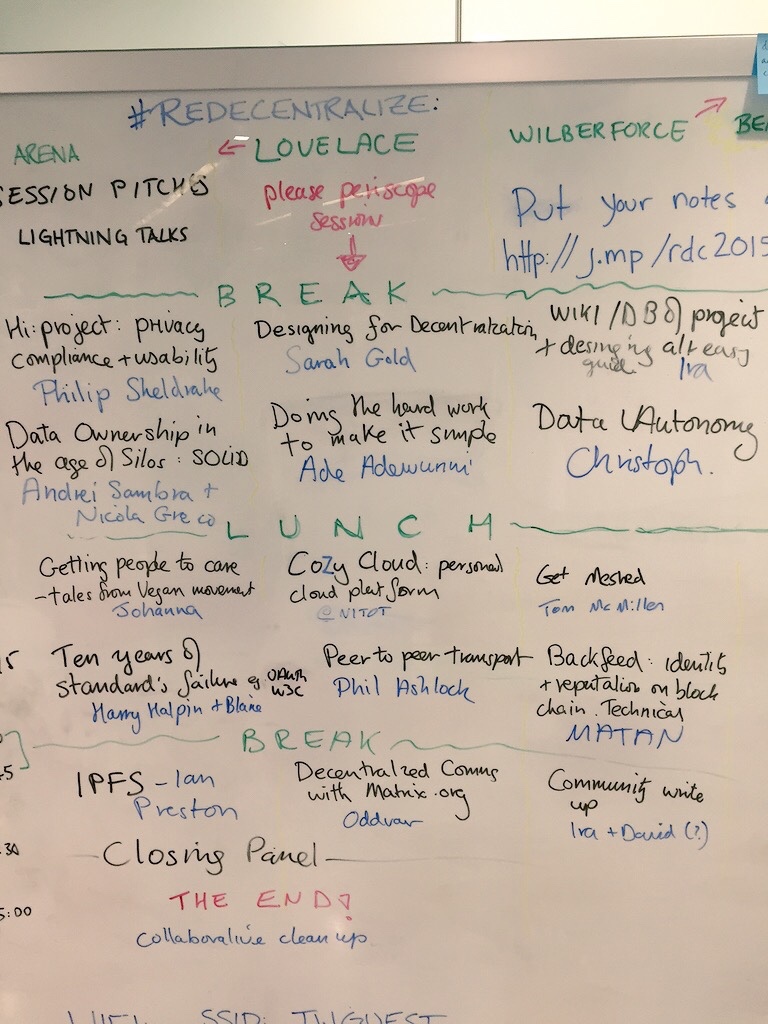 #REDECENTRALIZE:
ARENA
← LOVELACE
WILBERFORCE
SESSION PITCHES
LIGHTNING TALKS
please periscope
session
Put your notes
http://j.mp/rdc2015
BREAK
Hi:project: privacy
compliance + usability
Philip Sheldrake
Designing for Decentralization
Sarah Gold
WIKI/DB of project
+ designing alt easy
guide
Ira
Data Ownership in
the age of Silos: SOLID
Andrei Sambra +
Nicola Greco
Doing the hard work
to make it simple
Ade Adewunmi
Data Autonomy
Christoph.
LUNCH
Getting people to care
- tales from Vegan movement
Johanna
CoZy Cloud: personal
cloud platform
@NITOT
Get Meshed
Tom McMillen
Ten years of
standard's failure eg OAuth
W3C
Harry Halpin + Blaine
Peer to peer transport
Phil Ashlock
Backfeed: identity
+ reputation on block
chain. Technical
MATAN
BREAK
IPFS - Ian
Preston
Decentralized Comms
with Matrix.org
Oddvar
Community write
up
Ira + David (?)
30
Closing Panel
5:00
THE END?
Collaborative clean up
WIFI SSID: TWGUEST